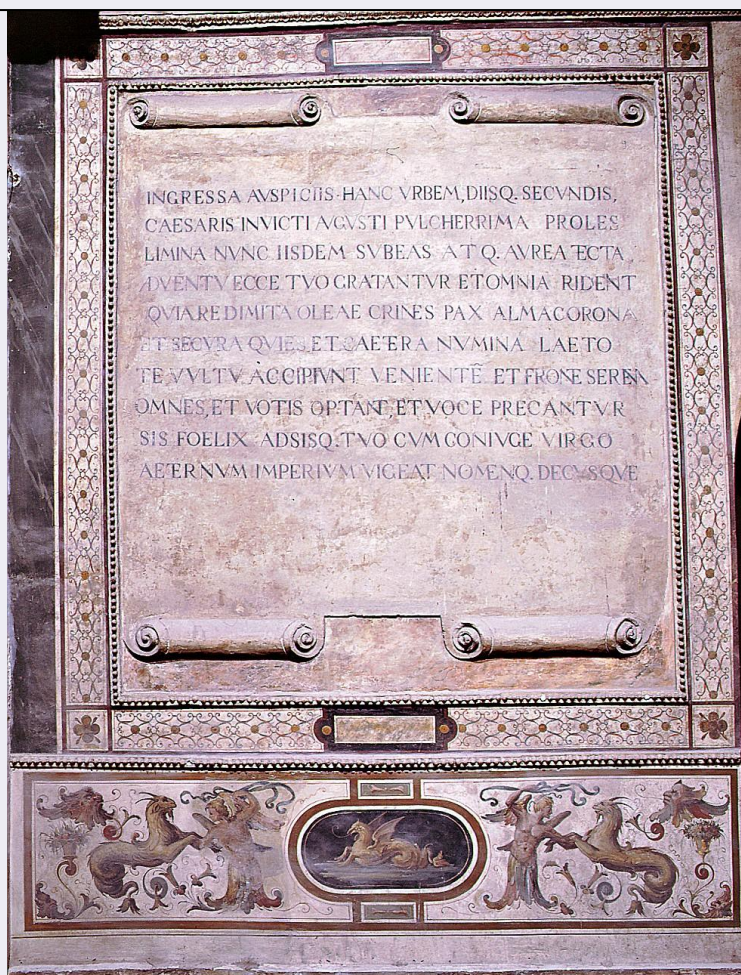 INGRESSA AVSPICIIS·HANC VRBEM, DIISQ. SECVNDIS,
CAESARIS INVICTI AVGVSTI PVLCHERRIMA PROLES
LIMINA NVNC IISDEM SVBEAS ATQ. AVREA TECTA
ADVENTV ECCE TVO GRATANTVR ET OMNIA RIDENT
QVIA REDIMITA OLEAE CRINES PAX ALMA CORONA
ET SECVRA QVIES, ET CAETERA NVMINA LAETO
TE VVLTV ACCIPIVNT VENIENTE ET FRONE SERENA
OMNES, ET VOTIS OPTANT, ET VOCE PRECANTVR
SIS FOELIX ADSISQ. TVO CVM CONIVGE VIRGO
AETERNVM IMPERIVM VIGEAT NOMENQ. DECVSQVE